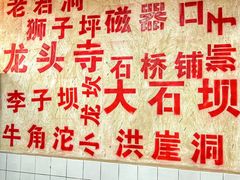 老君洞
狮子坪磁器口
龙头寺石桥铺
李子坝龙坎大石坝
牛角沱小洪崖洞